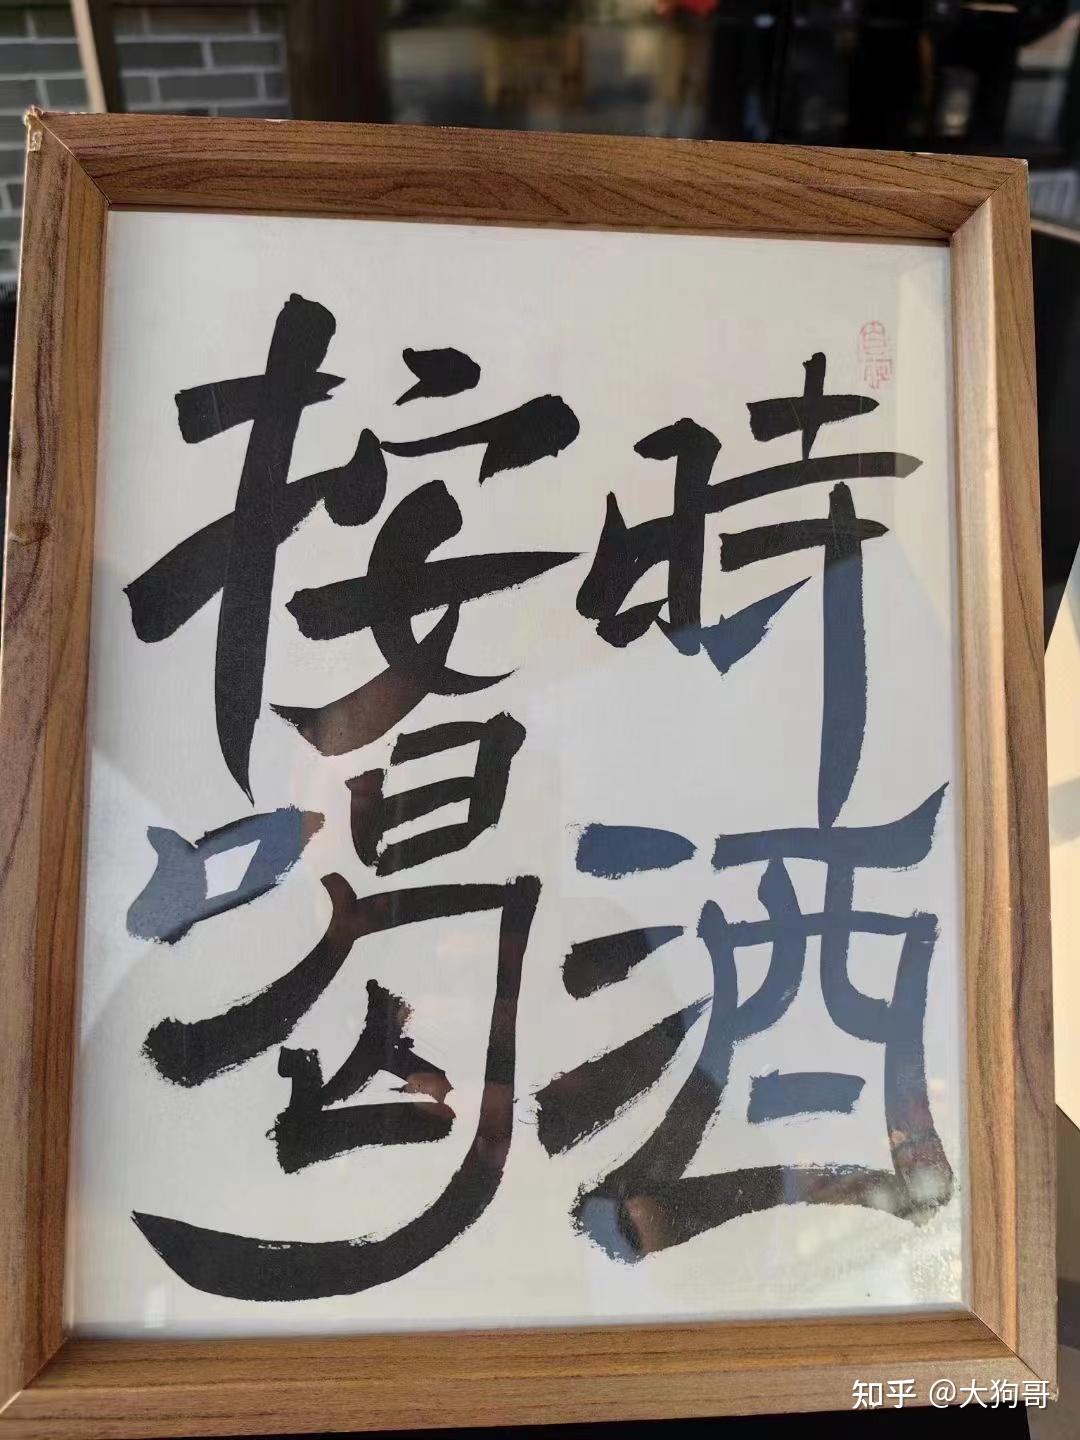 按時
喝酒
知乎 @大狗哥